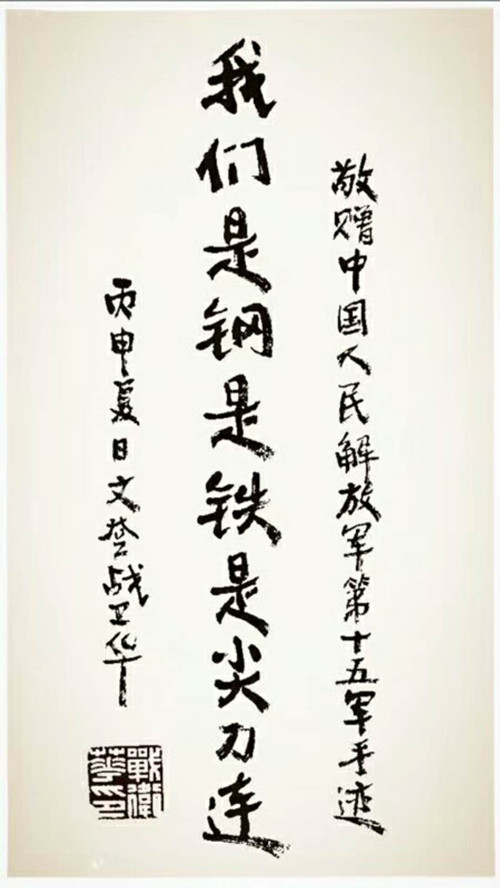 敬赠中国人民解放军第十五军手迹
我们是钢是铁是尖刀连
丙申夏日文登战卫华
戰衛華印